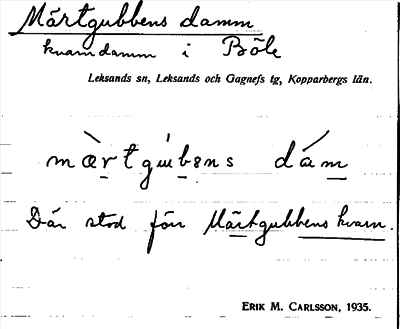 Märtgubbens damm
kvarndamm i Böle
Leksands sn, Leksands och Gagnefs tg, Kopparbergs län.
mærtgubəns dám
Där stod förr Märtgubbens kvarn.
ERIK M. CARLSSON, 1935.